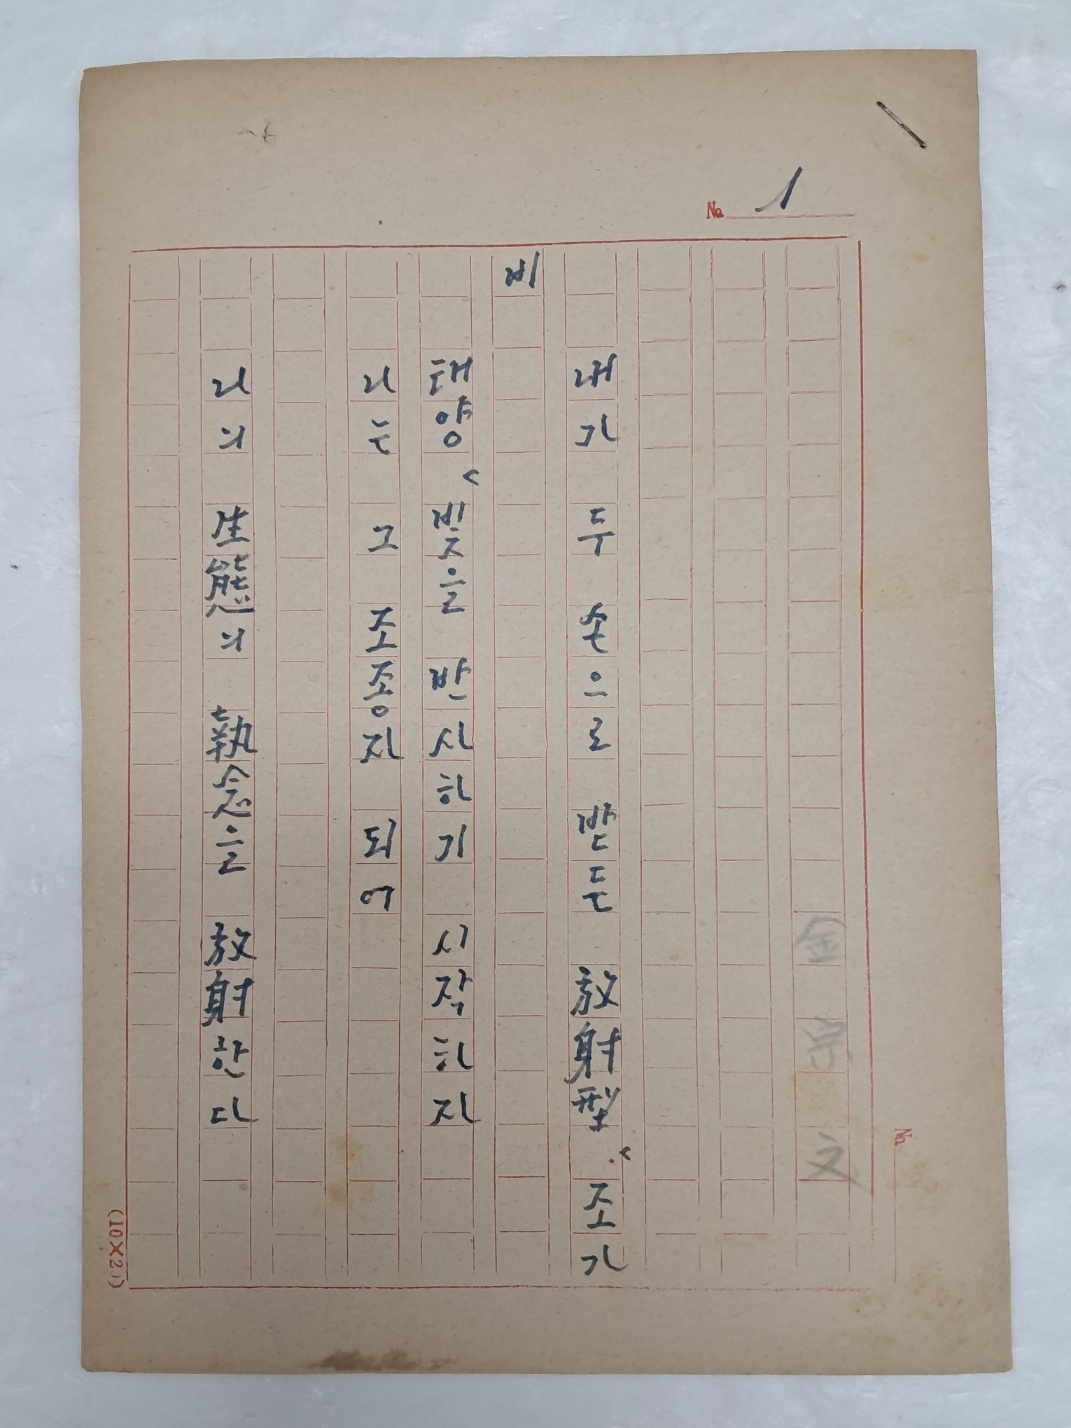 No. 1
金宗文
내가 두 손으로 받든 放射型 조가
비
태양 빛을 반사하기 시작하자
나는 그 조종자 되어
나의 生態의 執念을 放射한다
No.
(10×20)